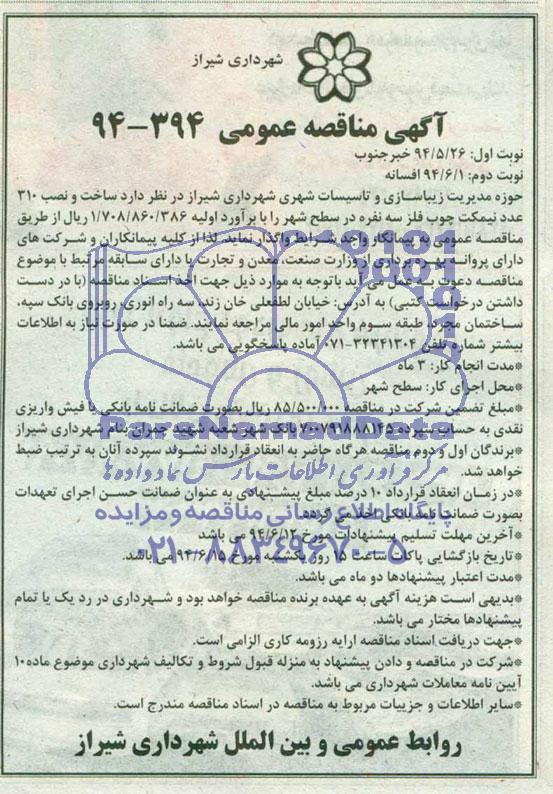 شهرداری شیراز
آگهی مناقصه عمومی ۳۹۴-۹۴
نوبت اول: ۹۴/۵/۲۶ خبرجنوب
نوبت دوم: ۹۴/۶/۱ افسانه
حوزه مدیریت زیباسازی و تاسیسات شهری شهرداری شیراز در نظر دارد ساخت و نصب ۳۱۰
عدد نیمکت چوب فلز سه نفره در سطح شهر را با برآورد اولیه ۱/۷۰۸/۸۶۰/۳۸۶ ریال از طریق
مناقصه عمومی به پیمانکار واجد شرایط واگذار نماید. لذا از کلیه پیمانکاران و شرکت های
دارای پروانه بهره برداری از وزارت صنعت، معدن و تجارت یا دارای سابقه مرتبط با موضوع
مناقصه دعوت به عمل می آید باتوجه به موارد ذیل جهت اخذ اسناد مناقصه (با در دست
داشتن درخواست کتبی) به آدرس: خیابان لطفعلی خان زند، سه راه انوری، روبروی بانک سپه،
ساختمان مجرد، طبقه سوم واحد امور مالی مراجعه نمایند. ضمنا در صورت نیاز به اطلاعات
بیشتر شماره تلفن ۳۲۳۴۱۳۰۴-۰۷۱ آماده پاسخگویی می باشد.
*مدت انجام کار: ۳ ماه
*محل اجرای کار: سطح شهر
*مبلغ تضمین شرکت در مناقصه ۸۵/۵۰۰/۰۰۰ ریال بصورت ضمانت نامه بانکی یا فیش واریزی
نقدی به حساب سپرده ۷۰۰۷۹۱۸۸۸۱۴۵ بانک شهر شعبه شهید چمران بنام شهرداری شیراز
*برندگان اول و دوم مناقصه هرگاه حاضر به انعقاد قرارداد نشوند سپرده آنان به ترتیب ضبط
خواهد شد.
*در زمان انعقاد قرارداد ۱۰ درصد مبلغ پیشنهادی به عنوان ضمانت حسن اجرای تعهدات
بصورت ضمانت نامه بانکی اخذ می گردد.
*آخرین مهلت تسلیم پیشنهادات مورخ ۹۴/۶/۱۲ می باشد
*تاریخ بازگشایی پاکات ساعت ۱۵ روز یکشنبه مورخ ۹۴/۶/۱۵ می باشد.
*مدت اعتبار پیشنهادها دو ماه می باشد.
*بدیهی است هزینه آگهی به عهده برنده مناقصه خواهد بود و شهرداری در رد یک یا تمام
پیشنهادها مختار می باشد.
*جهت دریافت اسناد مناقصه ارایه رزومه کاری الزامی است.
*شرکت در مناقصه و دادن پیشنهاد به منزله قبول شروط و تکالیف شهرداری موضوع ماده۱۰
آیین نامه معاملات شهرداری می باشد.
*سایر اطلاعات و جزییات مربوط به مناقصه در اسناد مناقصه مندرج است.
روابط عمومی و بین الملل شهرداری شیراز
ParsNamadData
مرکز فرآوری اطلاعات پارس نماد داده ها
پایگاه اطلاع رسانی مناقصه و مزایده
۰۲۱-۸۸۳۴۹۶۷۰-۵